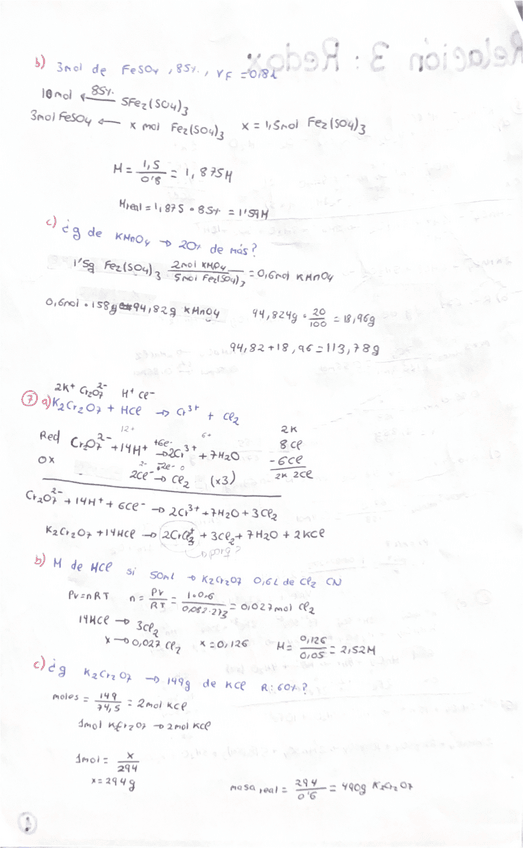 Relación 3: Redox
b) 3mol de FeSO4, 85%, VF = 0'8L
10mol ← 85% 5Fe2(SO4)3
3mol FeSO4 ← x mol Fe2(SO4)3 x = 1,5mol Fe2(SO4)3
M = 1,5/0'8 = 1,875M
Mreal = 1,875 · 85% = 1'59M
c) ¿g de KMnO4 → 20% de más?
1'5g Fe2(SO4)3 2mol KMnO4/5mol Fe2(SO4)3 = 0,6mol KMnO4
0,6mol · 158g = 94,82g KMnO4 94,824g · 20/100 = 18,96g
94,82 + 18,96 = 113,78g
2K+ Cr2O7 2- H+ Cl-
7 a) K2Cr2O7 + HCl → Cr3+ + Cl2
12+ 6+ 2K
Red Cr2O7 2- + 14H+ +6e- → 2Cr3+ + 7H2O 8Cl
-6Cl
Ox 2Cl- -2e- → Cl2 (x3) 2K 2Cl
Cr2O7 2- + 14H+ + 6Cl- → 2Cr3+ + 7H2O + 3Cl2
K2Cr2O7 + 14HCl → 2CrCl3 + 3Cl2 + 7H2O + 2KCl
¿porq?
b) M de HCl si 50ml → K2Cr2O7 0,6L de Cl2 CN
PV = nRT n = PV/RT = 1·0.6/0,082·273 = 0,027mol Cl2
14HCl → 3Cl2
x → 0,027 Cl2 x = 0,126 M = 0,126/0,05 = 2,52M
c) ¿g K2Cr2O7 → 149g de KCl R: 60%?
moles = 149/74,5 = 2mol KCl
1mol K2Cr2O7 → 2mol KCl
1mol = x/294
x = 294g masa real = 294/0'6 = 490g K2Cr2O7